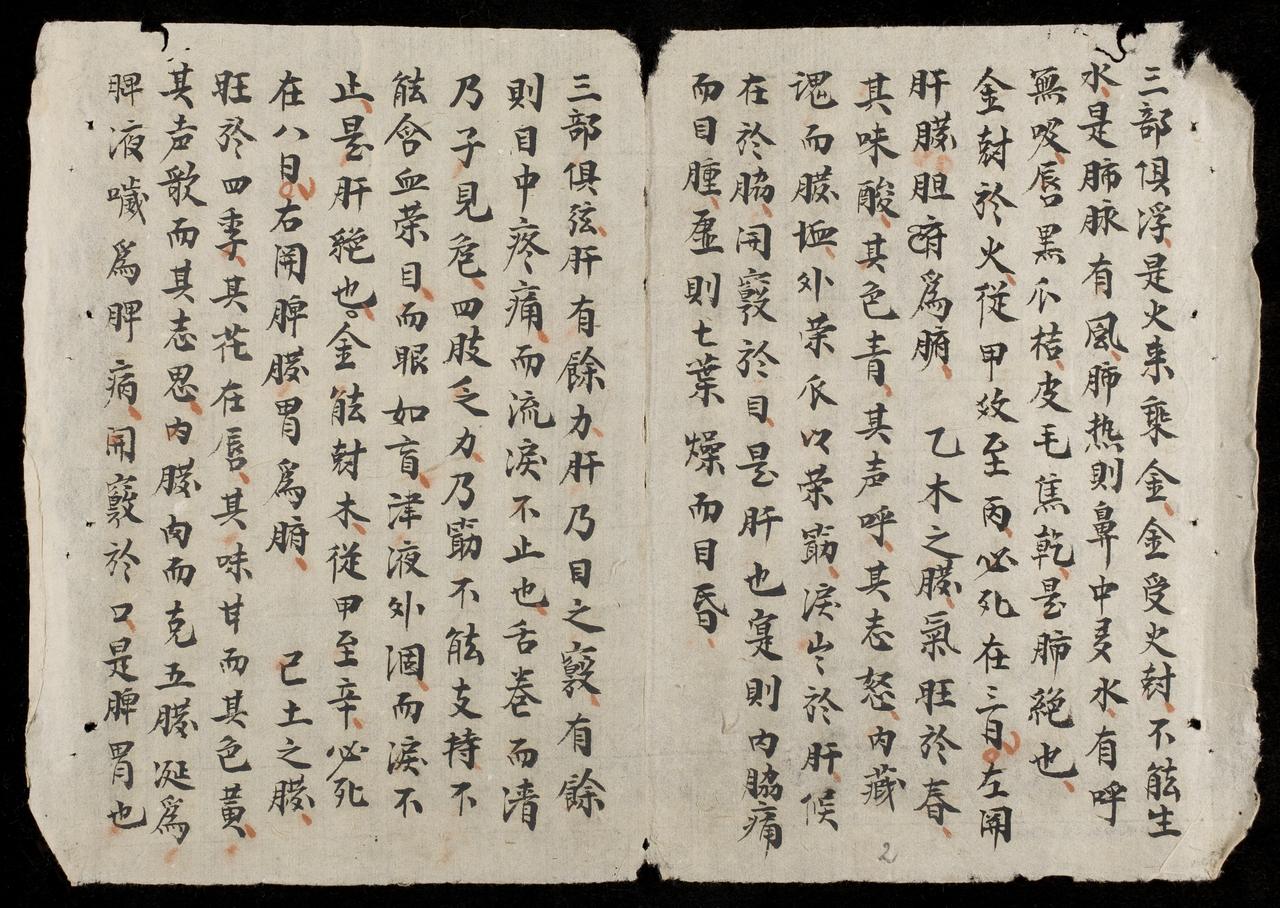 三部俱浮是火来乘金金受火尅不能生
水是肺脉有風肺热則鼻中多水有呼
無吸唇黑爪桔皮毛焦乾是肺絕也
金尅於火從甲数至丙必死在三日左関
肝臟胆府為腑 乙木之臟氣旺於春
其味酸其色青其声呼其志怒内藏
魂而臟血外荣爪以荣筋淚出於肝候
在於脇開竅於目是肝也寔則内脇痛
而目腫虛則七葉燥而目昏
三部俱弦肝有餘力肝乃目之竅有餘
則目中疼痛而流淚不止也舌卷而清
乃子見危四肢乏力乃筋不能支持不
能含血荣目而眼如盲津液外涸而淚不
止是肝絕也金能尅木從甲至辛必死
在八日右関脾臟胃為腑 己土之臟
旺於四季其花在唇其味甘而其色黃
其声歌而其志思内臟肉而克五臟涎為
脾液噦為脾病開竅於口是脾胃也
2